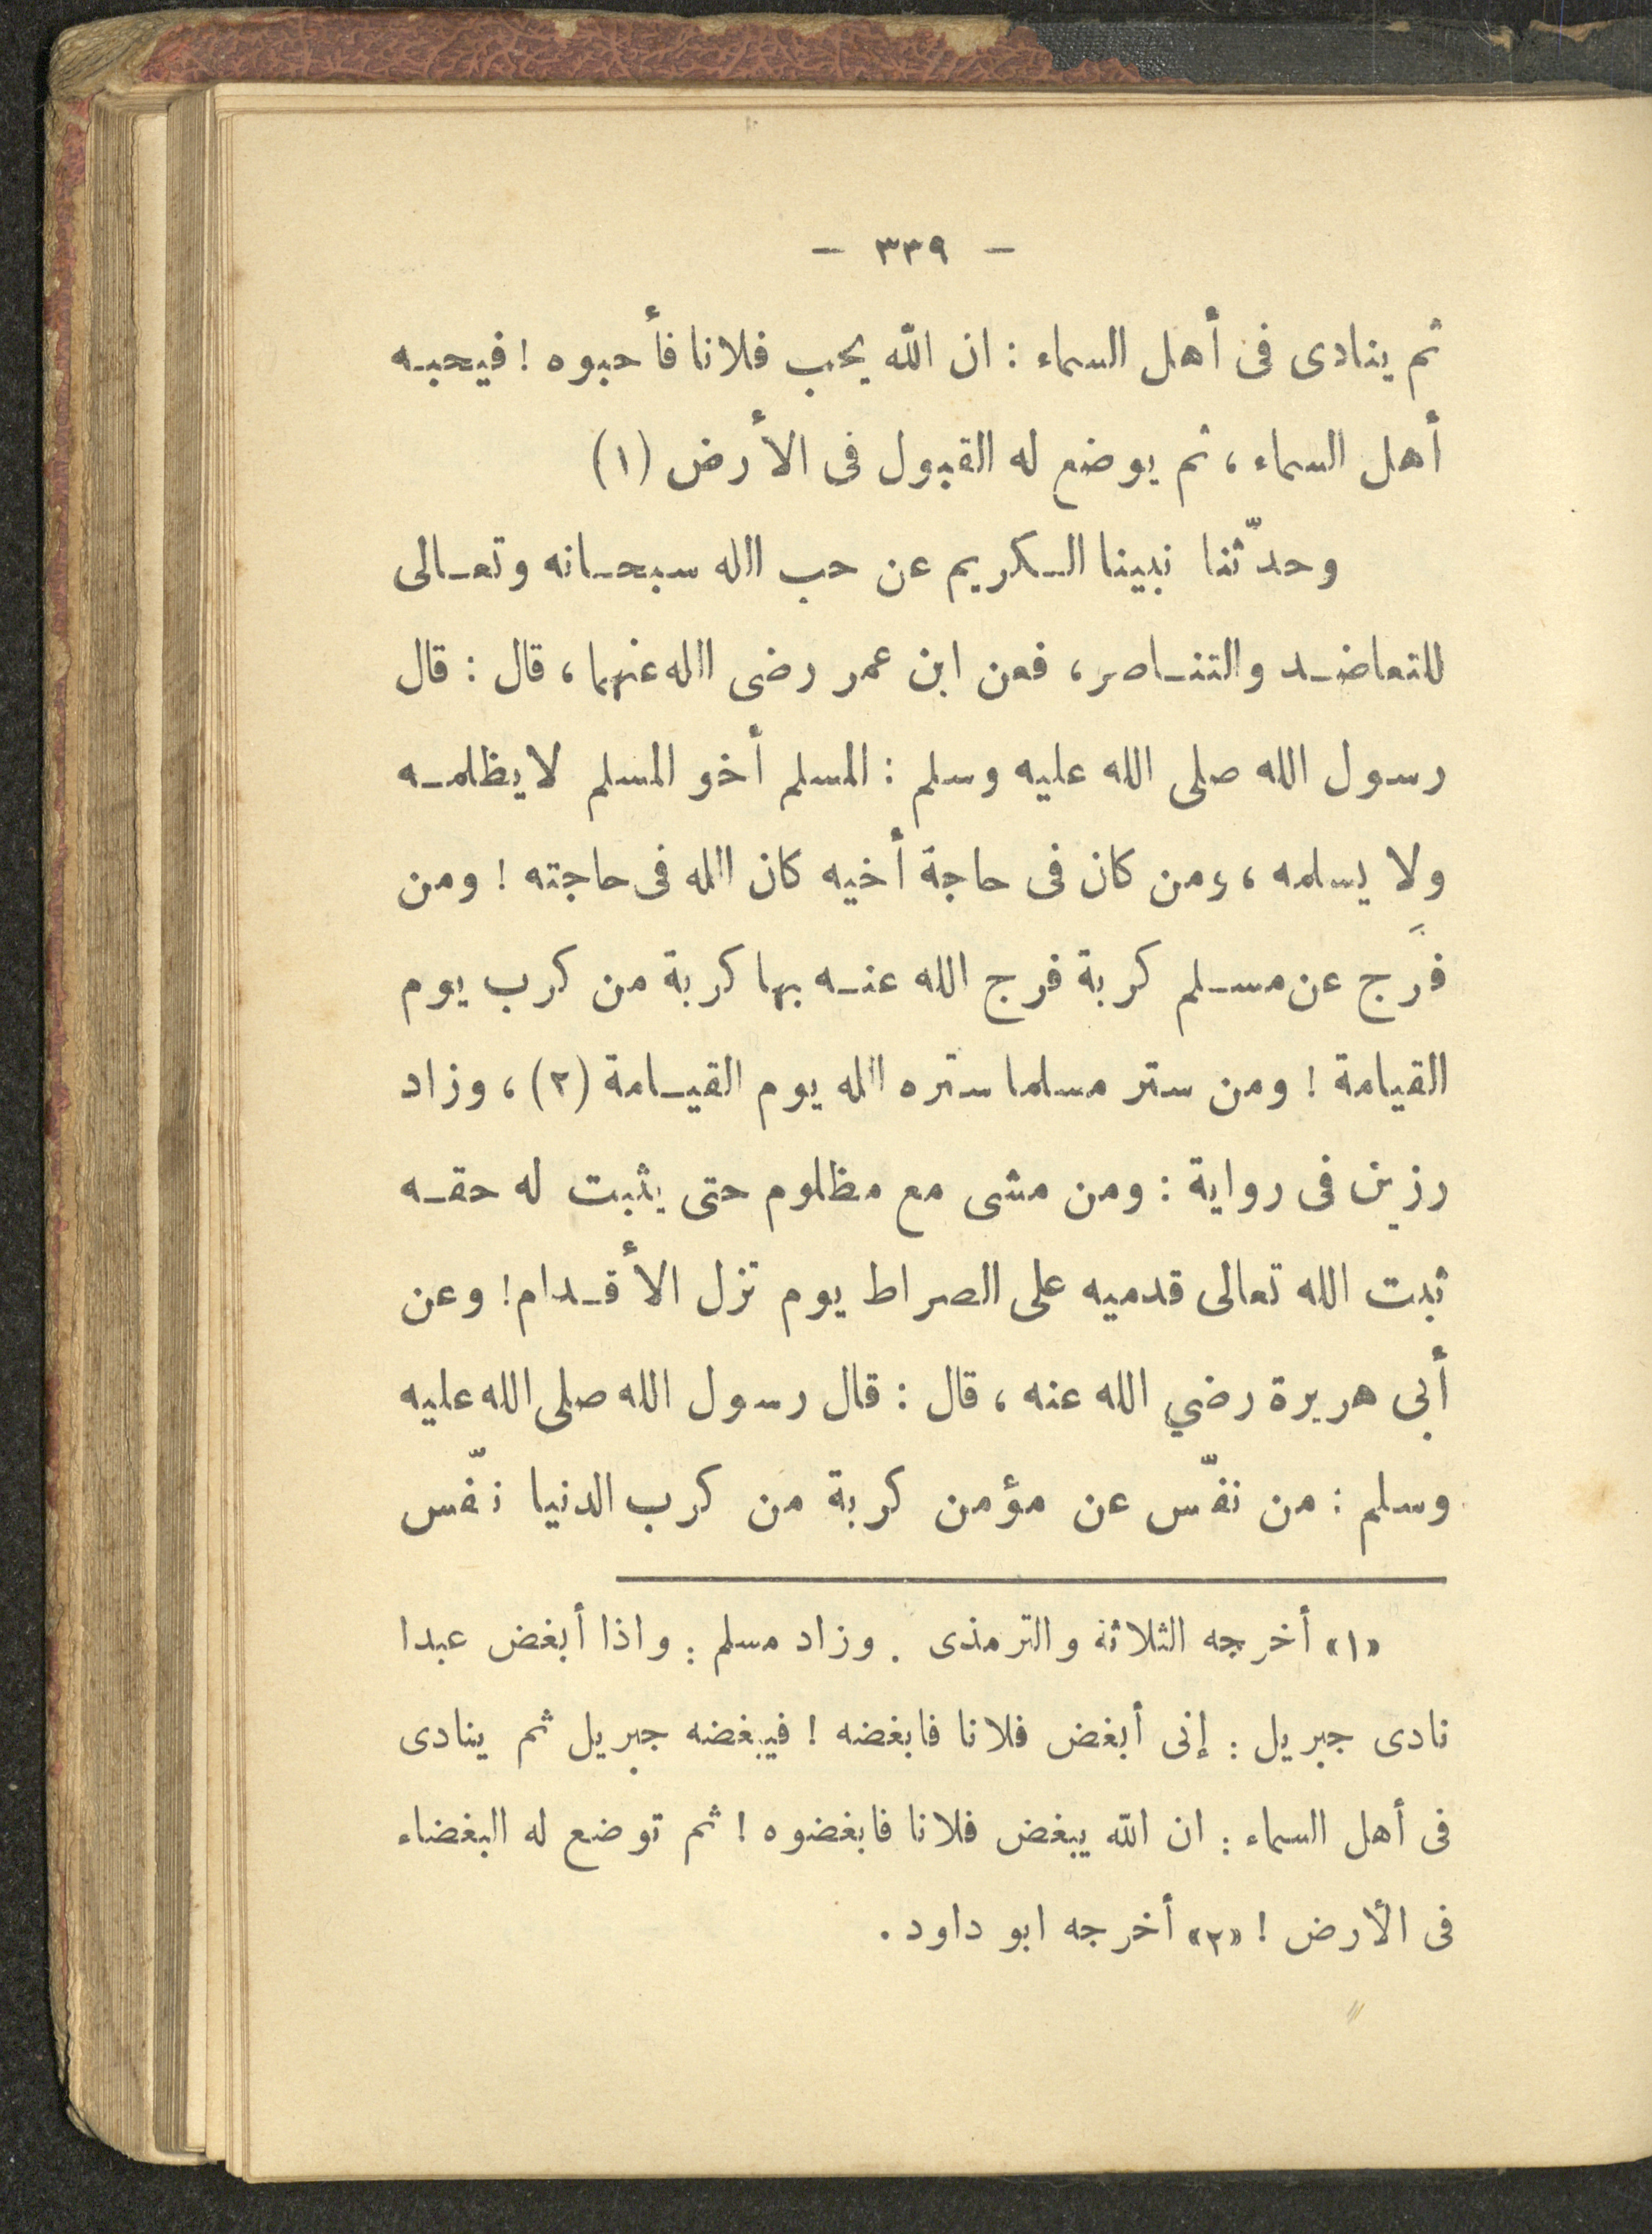 - ٣٣٩ -
ثم ينادى فى أهل السماء : ان الله يحب فلانا فأحبوه ! فيحبه
أهل السماء ، ثم يوضع له القبول فى الأرض (١)
وحدّثنا نبينا الكريم عن حب الله سبحانه وتعالى
للتعاضد والتناصر ، فعن ابن عمر رضى الله عنهما ، قال : قال
رسول الله صلى الله عليه وسلم : المسلم أخو المسلم لا يظلمه
ولا يسلمه ، ومن كان فى حاجة أخيه كان الله فى حاجته ! ومن
فرَج عن مسلم كربة فرج الله عنه بها كربة من كرب يوم
القيامة ! ومن ستر مسلما ستره الله يوم القيامة (٢) ، وزاد
رزين فى رواية : ومن مشى مع مظلوم حتى يثبت له حقه
ثبت الله تعالى قدميه على الصراط يوم تزل الأقدام ! وعن
أبى هريرة رضي الله عنه ، قال : قال رسول الله صلى الله عليه
وسلم : من نفّس عن مؤمن كربة من كرب الدنيا نفّس
«١» أخرجه الثلاثة والترمذى . وزاد مسلم : واذا أبغض عبدا
نادى جبريل : إنى أبغض فلانا فابغضه ! فيبغضه جبريل ثم ينادى
فى أهل السماء : ان الله يبغض فلانا فابغضوه ! ثم توضع له البغضاء
فى الأرض ! «٢» أخرجه ابو داود .